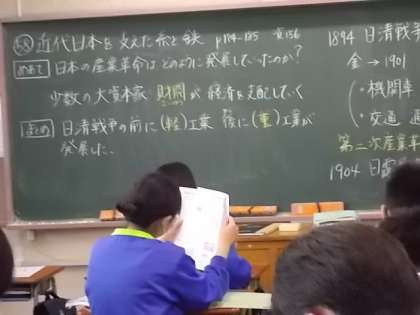 58 近代日本を支えた糸と鉄 p184-185 資156
めあて 日本の産業革命はどのように発展していったのか？
少数の大資本家 財閥が経済を支配していく
まとめ 日清戦争の前に(軽)工業 後に(重)工業が
発展した。
1894 日清戦争
金→1901
・機関車
・交通
第二次産業革
1904 日露